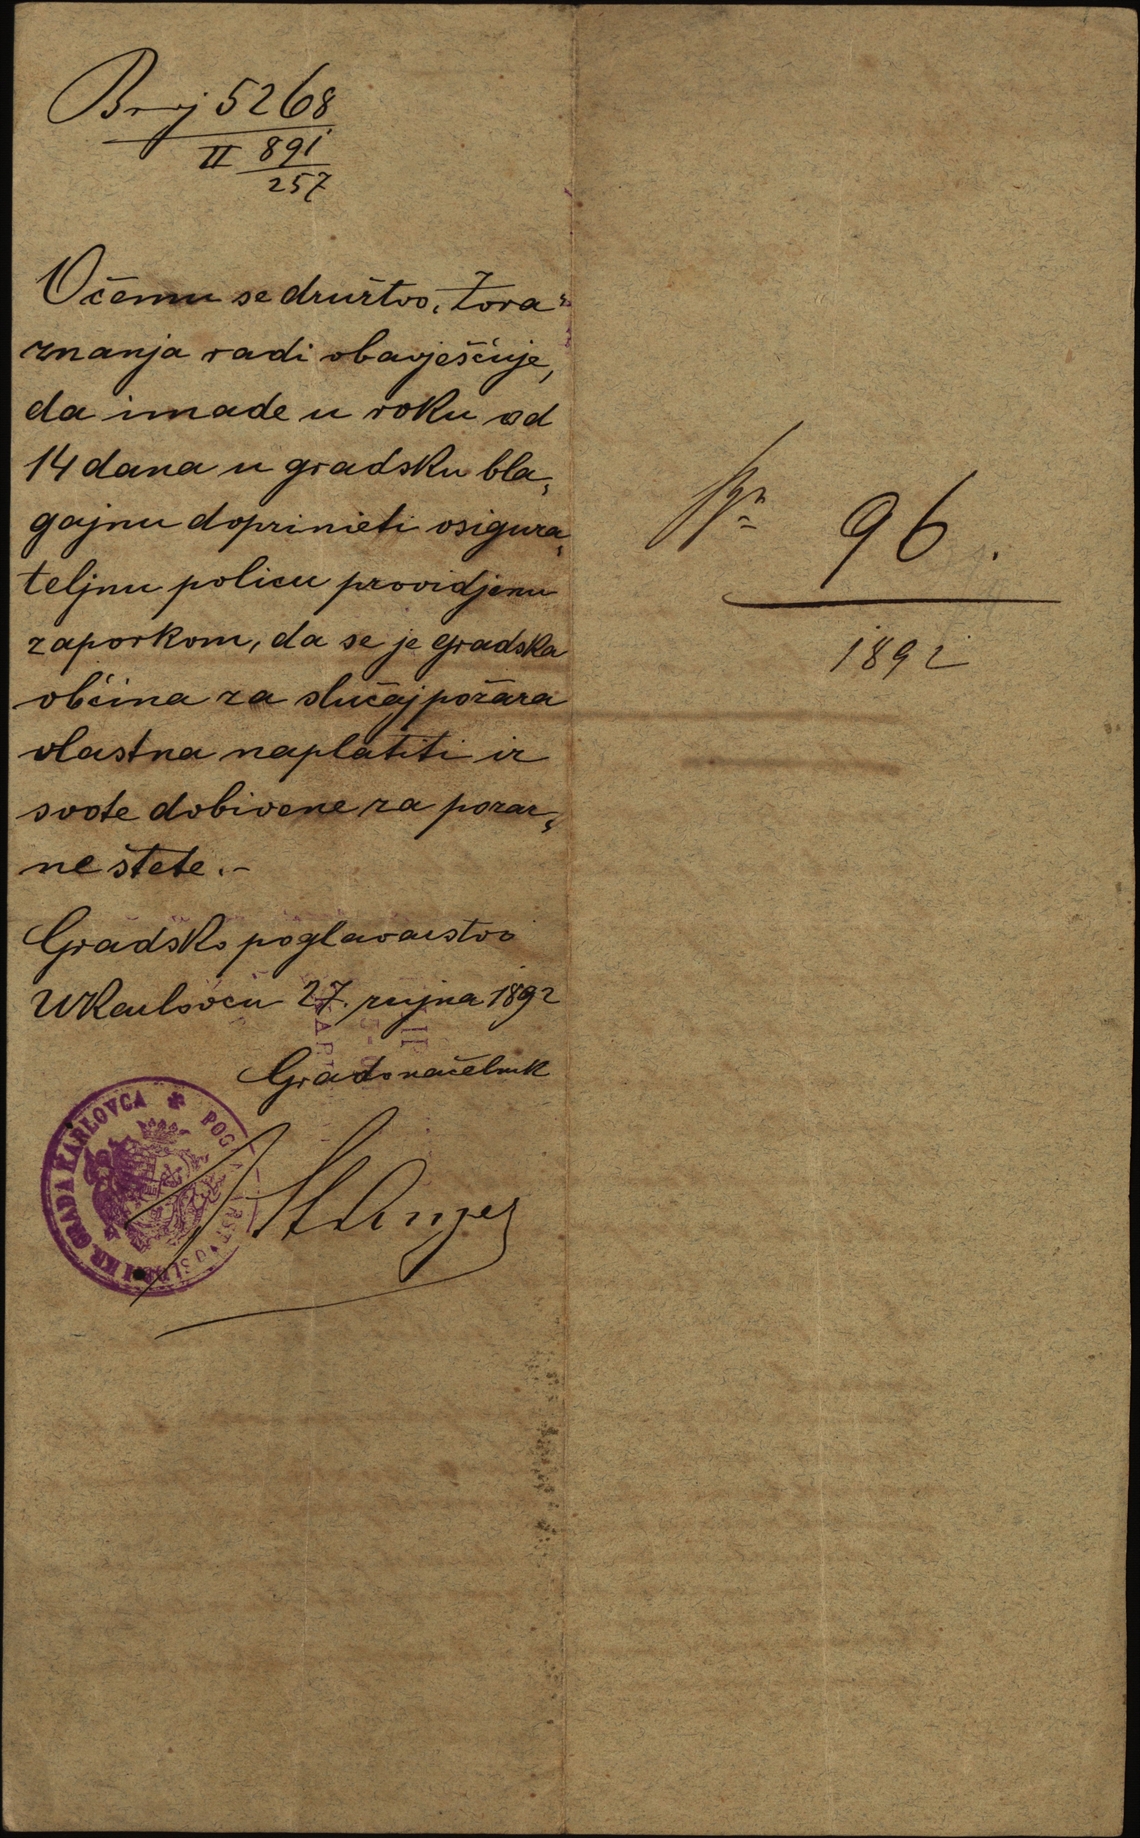 Broj 5268
II 891
257
Očemu se družtvo „Zora“
znanja radi obavješćuje,
da imade u roku od
14 dana u gradsku bla„
gajnu doprinieti osigura„
teljnu policu providjenu
zaporkom, da se je gradska
obćina za slučaj požara
vlastna naplatiti iz
svote dobivene za požar„
ne štete.-
Gradsko poglavarstvo
U Karlovcu 27. rujna 1892
Gradonačelnik
KR. GRADA KARLOVCA * POGLAVARSTVO SL.
96.
1892